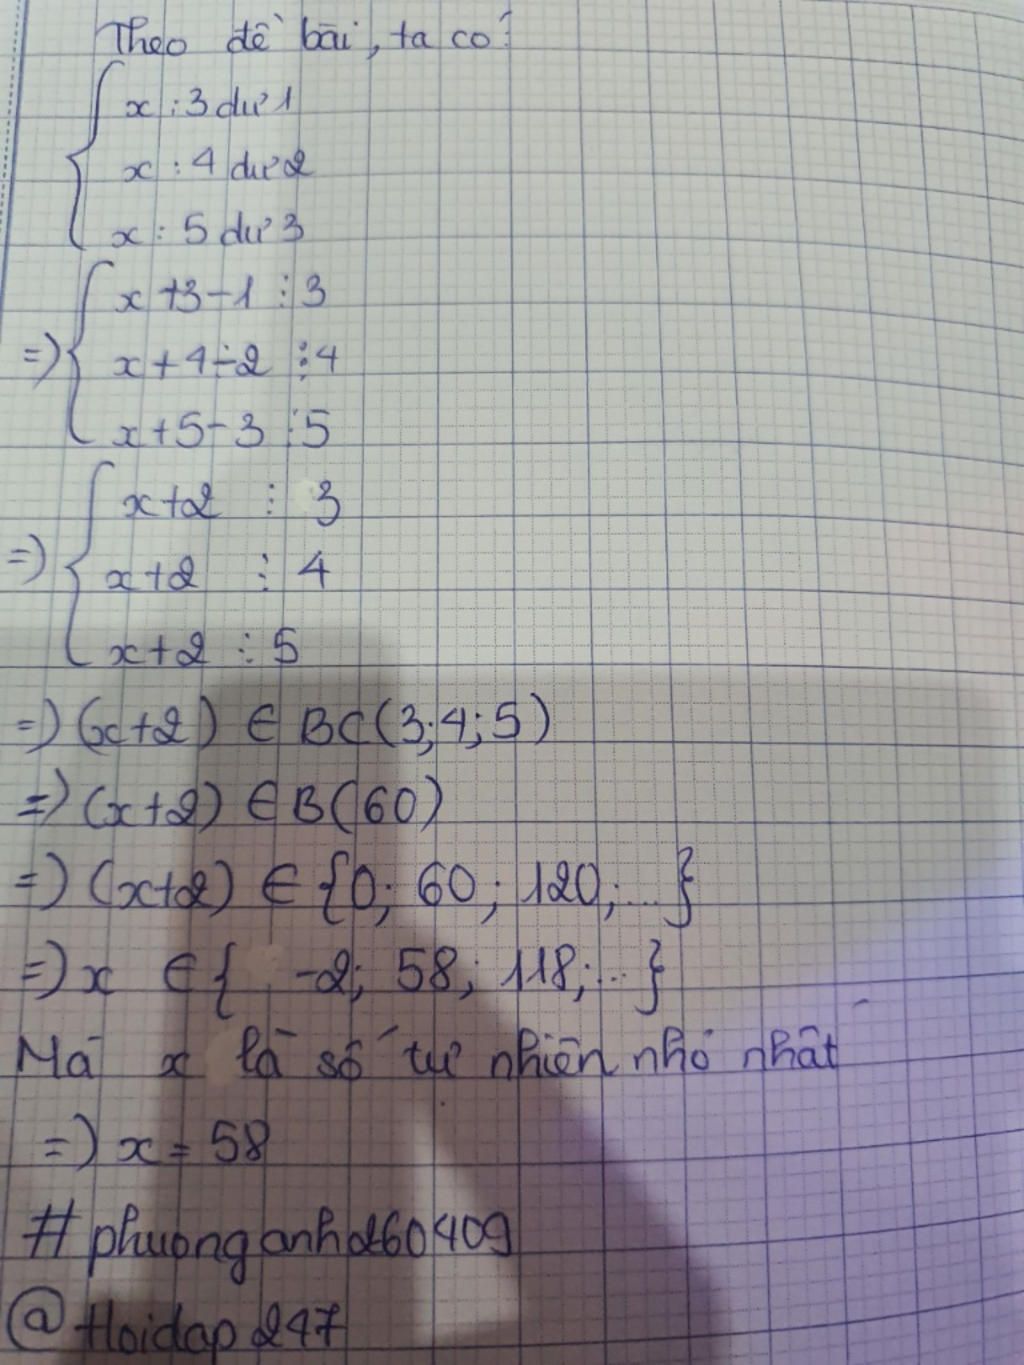 Theo đề bài, ta có:
x : 3 dư 1
x : 4 dư 2
x : 5 dư 3
=> x + 3 - 1 ⋮ 3
x + 4 - 2 ⋮ 4
x + 5 - 3 ⋮ 5
=> x+2 ⋮ 3
x+2 ⋮ 4
x+2 ⋮ 5
=> (x+2) ∈ BC(3;4;5)
=> (x+2) ∈ B(60)
=> (x+2) ∈ {0; 60; 120; ...}
=> x ∈ { -2; 58; 118; ... }
Mà x là số tự nhiên nhỏ nhất
=> x = 58
#phuonganh260409
@Hoidap247